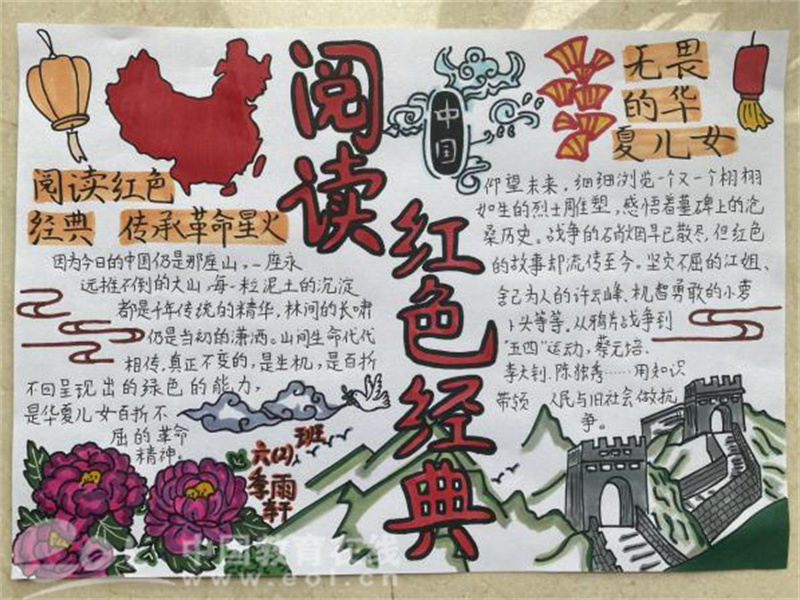 阅读
红色经典
中国
阅读红色
经典 传承革命星火
因为今日的中国仍是那座山，一座永
远推不倒的大山，每一粒泥土的沉淀
都是千年传统的精华，林间的长啸
仍是当初的潇洒。山间生命代代
相传，真正不变的，是生机，是百折
不回呈现出的绿色的能力，
是华夏儿女百折不
屈的革命
精神。
六(2)班
季雨轩
无畏
的华
夏儿女
仰望未来，细细浏览一个又一个栩栩
如生的烈士雕塑，感悟着墓碑上的沧
桑历史。战争的硝烟早已散尽，但红色
的故事却流传至今。坚宁不屈的江姐、
舍己为人的许云峰、机智勇敢的小萝
卜头等等，从鸦片战争到
"五四"运动，蔡元培、
李大钊、陈独秀……用知识
带领 人民与旧社会做抗
争。
中国教育在线
www.eol.cn